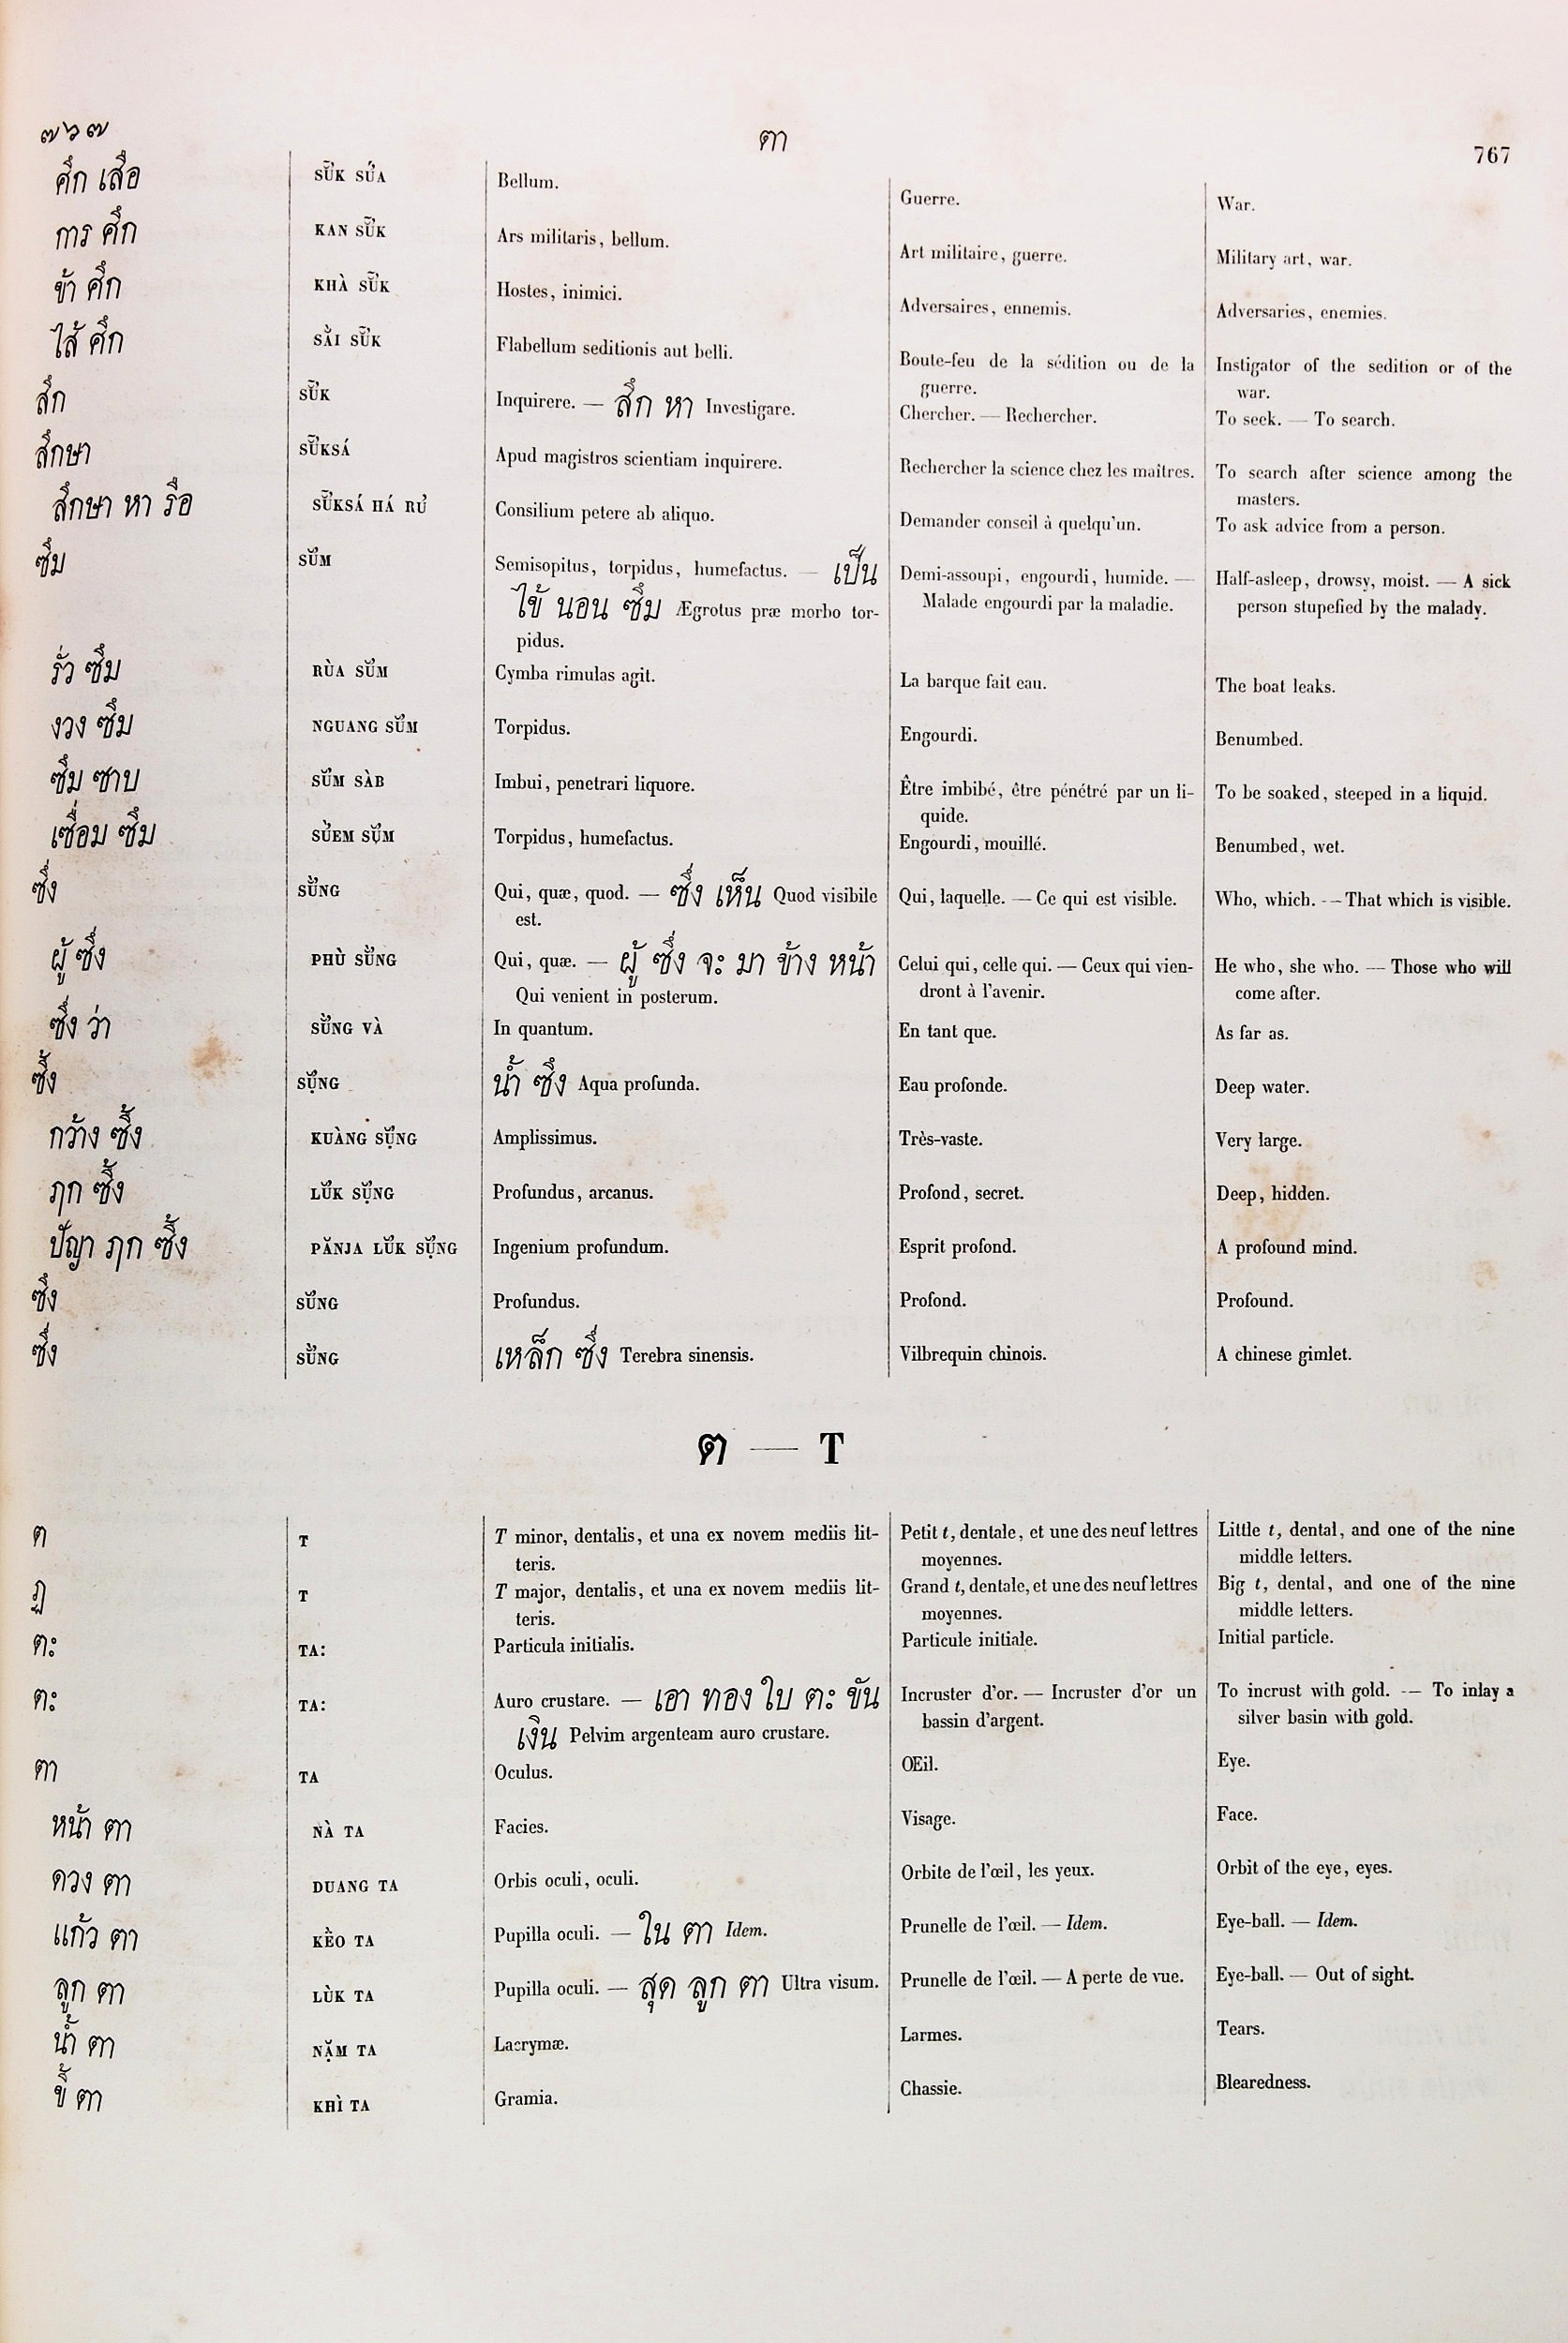 ๗๖๗
ตา
767
ศึก เสือ SŬK SÚA Bellum. Guerre. War.
การ ศึก KAN SŬK Ars militaris, bellum. Art militaire, guerre. Military art, war.
ข้า ศึก KHÀ SŬK Hostes, inimici. Adversaires, ennemis. Adversaries, enemies.
ไส้ ศึก Flabellum seditionis aut belli. Boute-feu de la sédition ou de la Instigator of the sedition or of the
guerre. war.
สึก SŬK Inquirere. — สึก หา Investigare. Chercher. — Rechercher. To seek. — To search.
สึกษา SŬKSÁ Apud magistros scientiam inquirere. Rechercher la science chez les maîtres. To search after science among the
masters.
สึกษา หา รือ SŬKSÁ HÁ RU Consilium petere ab aliquo. Demander conseil à quelqu'un. To ask advice from a person.
ซึม SŬM Semisopitus, torpidus, humefactus. — เป็น Demi-assoupi, engourdi, humide. — Half-asleep, drowsy, moist. — A sick
ไข้ นอน ซึม Ægrotus præ morbo tor- Malade engourdi par la maladie. person stupefied by the malady.
pidus.
รั่ว ซึม RÙA SŬM Cymba rimulas agit. La barque fait eau. The boat leaks.
งวง ซึม NGUANG SŬM Torpidus. Engourdi. Benumbed.
ซึม ซาบ SŬM SÀB Imbui, penetrari liquore. Être imbibé, être pénétré par un li- To be soaked, steeped in a liquid.
quide.
เซื่อม ซึม SÙEM SŬM Torpidus, humefactus. Engourdi, mouillé. Benumbed, wet.
ซึ่ง SŬNG Qui, quæ, quod. — ซึ่ง เห็น Quod visibile Qui, laquelle. — Ce qui est visible. Who, which. — That which is visible.
est.
ผู้ ซึ่ง PHÙ SŬNG Qui, quæ. — ผู้ ซึ่ง จะ มา ข้าง หน้า Celui qui, celle qui. — Ceux qui vien- He who, she who. — Those who will
Qui venient in posterum. dront à l'avenir. come after.
ซึ่ง ว่า SŬNG VÀ In quantum. En tant que. As far as.
ซึ้ง SŬNG น้ำ ซึง Aqua profunda. Eau profonde. Deep water.
กว้าง ซึ้ง KUÀNG SŬNG Amplissimus. Très-vaste. Very large.
ฦก ซึ้ง LŬK SŬNG Profundus, arcanus. Profond, secret. Deep, hidden.
ปัญา ฦก ซึ้ง PĂNJA LŬK SŬNG Ingenium profundum. Esprit profond. A profound mind.
ซึง SŬNG Profundus. Profond. Profound.
ซึ่ง SŬNG เหล็ก ซึ่ง Terebra sinensis. Vilbrequin chinois. A chinese gimlet.
ต — T
ต T T minor, dentalis, et una ex novem mediis lit- Petit t, dentale, et une des neuf lettres Little t, dental, and one of the nine
teris. moyennes. middle letters.
ฏ T T major, dentalis, et una ex novem mediis lit- Grand t, dentale, et une des neuf lettres Big t, dental, and one of the nine
teris. moyennes. middle letters.
ตะ TA: Particula initialis. Particule initiale. Initial particle.
ตะ TA: Auro crustare. — เอา ทอง ใบ ตะ ขัน Incruster d'or. — Incruster d'or un To incrust with gold. — To inlay a
เงิน Pelvim argenteam auro crustare. bassin d'argent. silver basin with gold.
ตา TA Oculus. Œil. Eye.
หน้า ตา NÀ TA Facies. Visage. Face.
ดวง ตา DUANG TA Orbis oculi, oculi. Orbite de l'œil, les yeux. Orbit of the eye, eyes.
แก้ว ตา KÈO TA Pupilla oculi. — ใน ตา Idem. Prunelle de l'œil. — Idem. Eye-ball. — Idem.
ลูก ตา LÙK TA Pupilla oculi. — สุด ลูก ตา Ultra visum. Prunelle de l'œil. — A perte de vue. Eye-ball. — Out of sight.
น้ำ ตา NẶM TA Lacrymæ. Larmes. Tears.
ขี้ ตา KHÌ TA Gramia. Chassie. Blearedness.